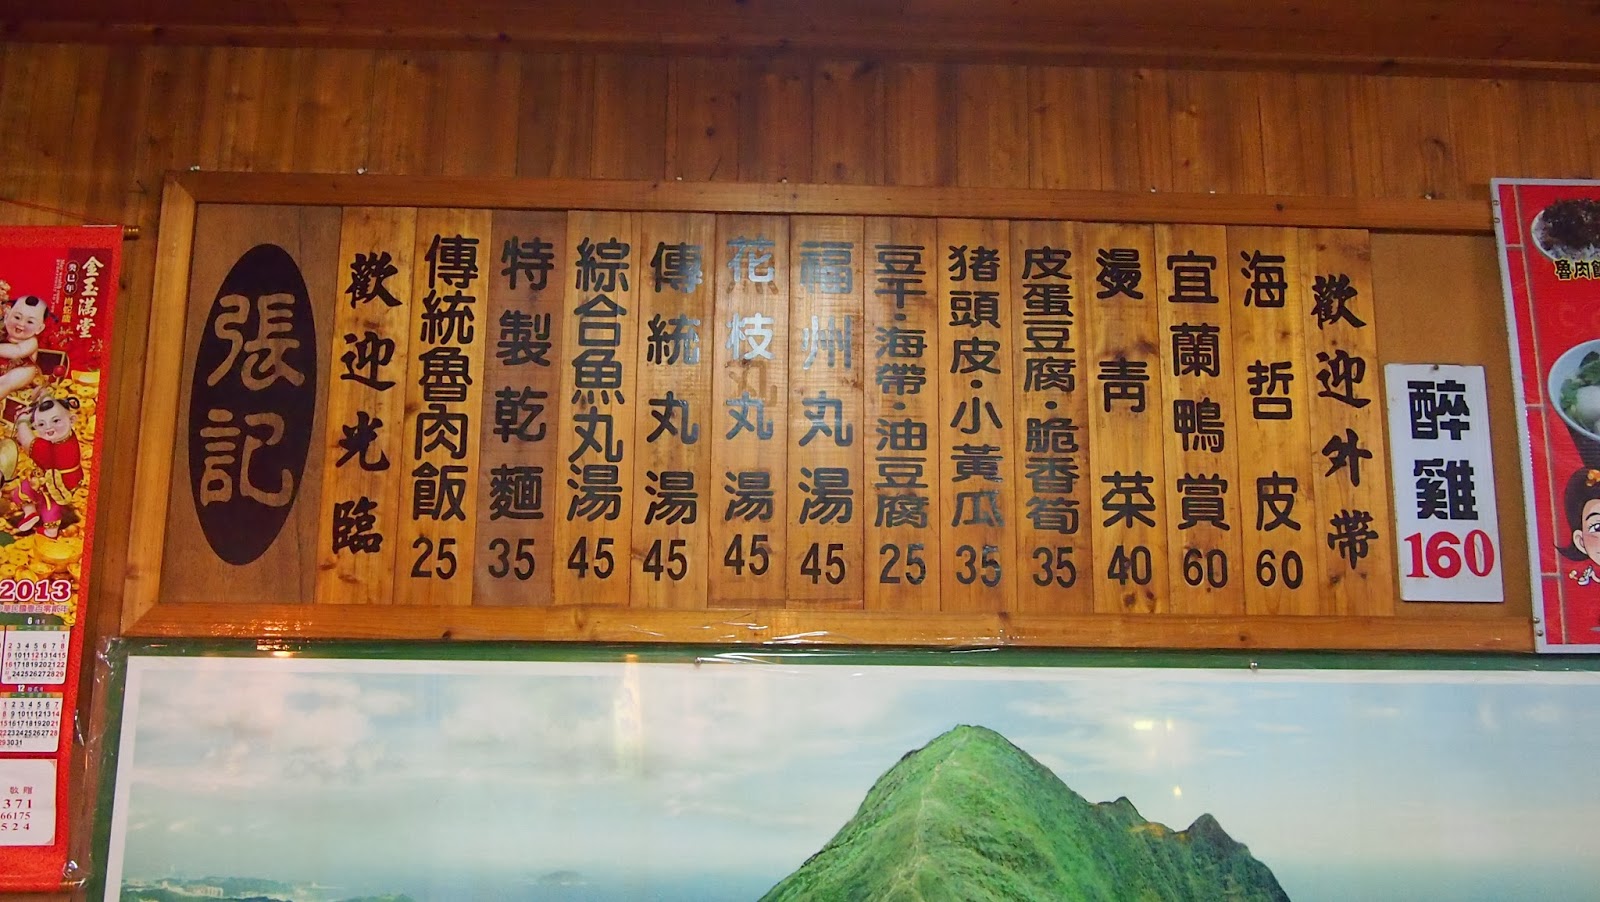 張記
歡迎光臨
傳統魯肉飯 25
特製乾麵 35
綜合魚丸湯 45
傳統丸湯 45
花枝丸湯 45
福州丸湯 45
豆干·海帶·油豆腐 25
豬頭皮·小黃瓜 35
皮蛋豆腐·脆香筍 35
燙青菜 40
宜蘭鴨賞 60
海哲皮 60
歡迎外帶
醉雞
160
魯肉飯
金玉滿堂
癸巳年 肖蛇歲
2013
6
12
敬贈
371
66175
524